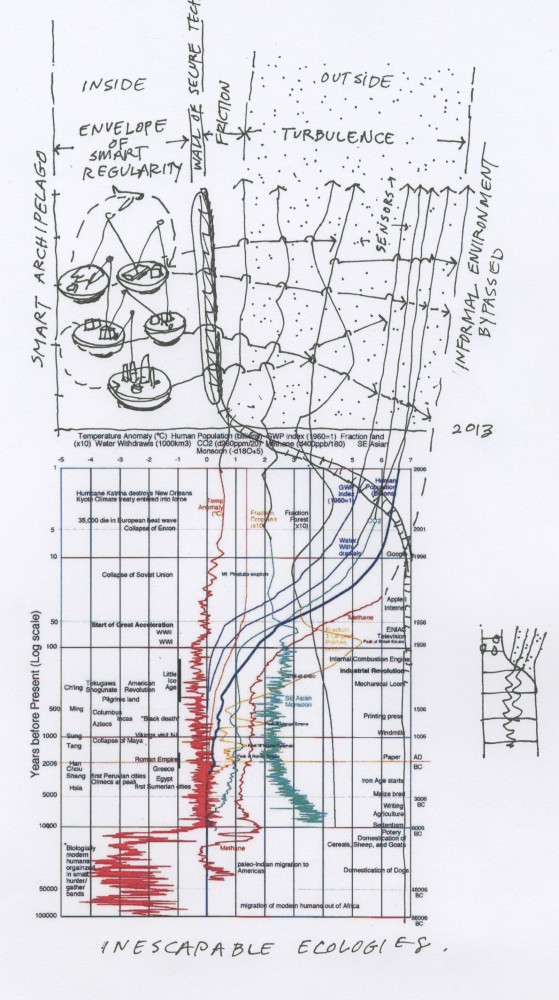 INSIDE
OUTSIDE
WALL OF SECURE TECH
FRICTION
ENVELOPE
OF
SMART
REGULARITY
TURBULENCE
SMART ARCHIPELAGO
SENSORS
INFORMAL ENVIRONMENT
BYPASSED
2013
Temperature Anomaly (°C) Human Population (billions) GWP Index (1960=1) Fraction land
(x10) Water Withdrawls (1000km3) CO2 (d260ppm/20) Methane (d400ppb/180) SE Asian
Monsoon (-d18O+5)
-5 -4 -3 -2 -1 0 1 2 3 4 5 6 7
1
2006
Hurricane Katrina destroys New Orleans
Kyoto Climate treaty entered into force
Temp
Anomaly
(°C)
GWP
index
(1960=1)
Human
Population
35,000 die in European heat wave
Collapse of Enron
Fraction
Forest
(x10)
CO2
5
2001
Water
With-
drawls
10
Google
1996
Collapse of Soviet Union
Mt. Pinatubo eruption
Apple
Internet
Methane
50
1956
Start of Great Acceleration
WWII
WWI
ENIAC
Television
100
1906
Internal Combustion Engine
Industrial Revolution
Little
Ice
Age
Ch'ing
Tokugawa
Shogunate
American
Revolution
Mechanical Loom
Pilgrims land
SE Asian
Monsoon
500
Ming
Columbus
Incas
Aztecs
"Black death"
Printing press
1506
1000
Sung
Tang
Vikings visit NA
Collapse of Maya
Windmills
1006
2000
Han
Chou
Shang
Hsia
Roman Empire
Greece
Paper
AD
BC
first Peruvian cities
Olmecs at peak
Egypt
first Sumerian cities
Iron Age starts
Maize bred
5000
Writing
Agriculture
3006
BC
10000
Sedentism
Pottery
8006
BC
Domestication of
Cereals, Sheep, and Goats
"Biologically
modern
humans
organized
in small
hunter/
gather
bands
Methane
paleo-Indian migration to
Americas
Domestication of Dogs
50000
48006
BC
100000
migration of modern humans out of Africa
98006
BC
Years before Present (Log scale)
INESCAPABLE ECOLOGIES.